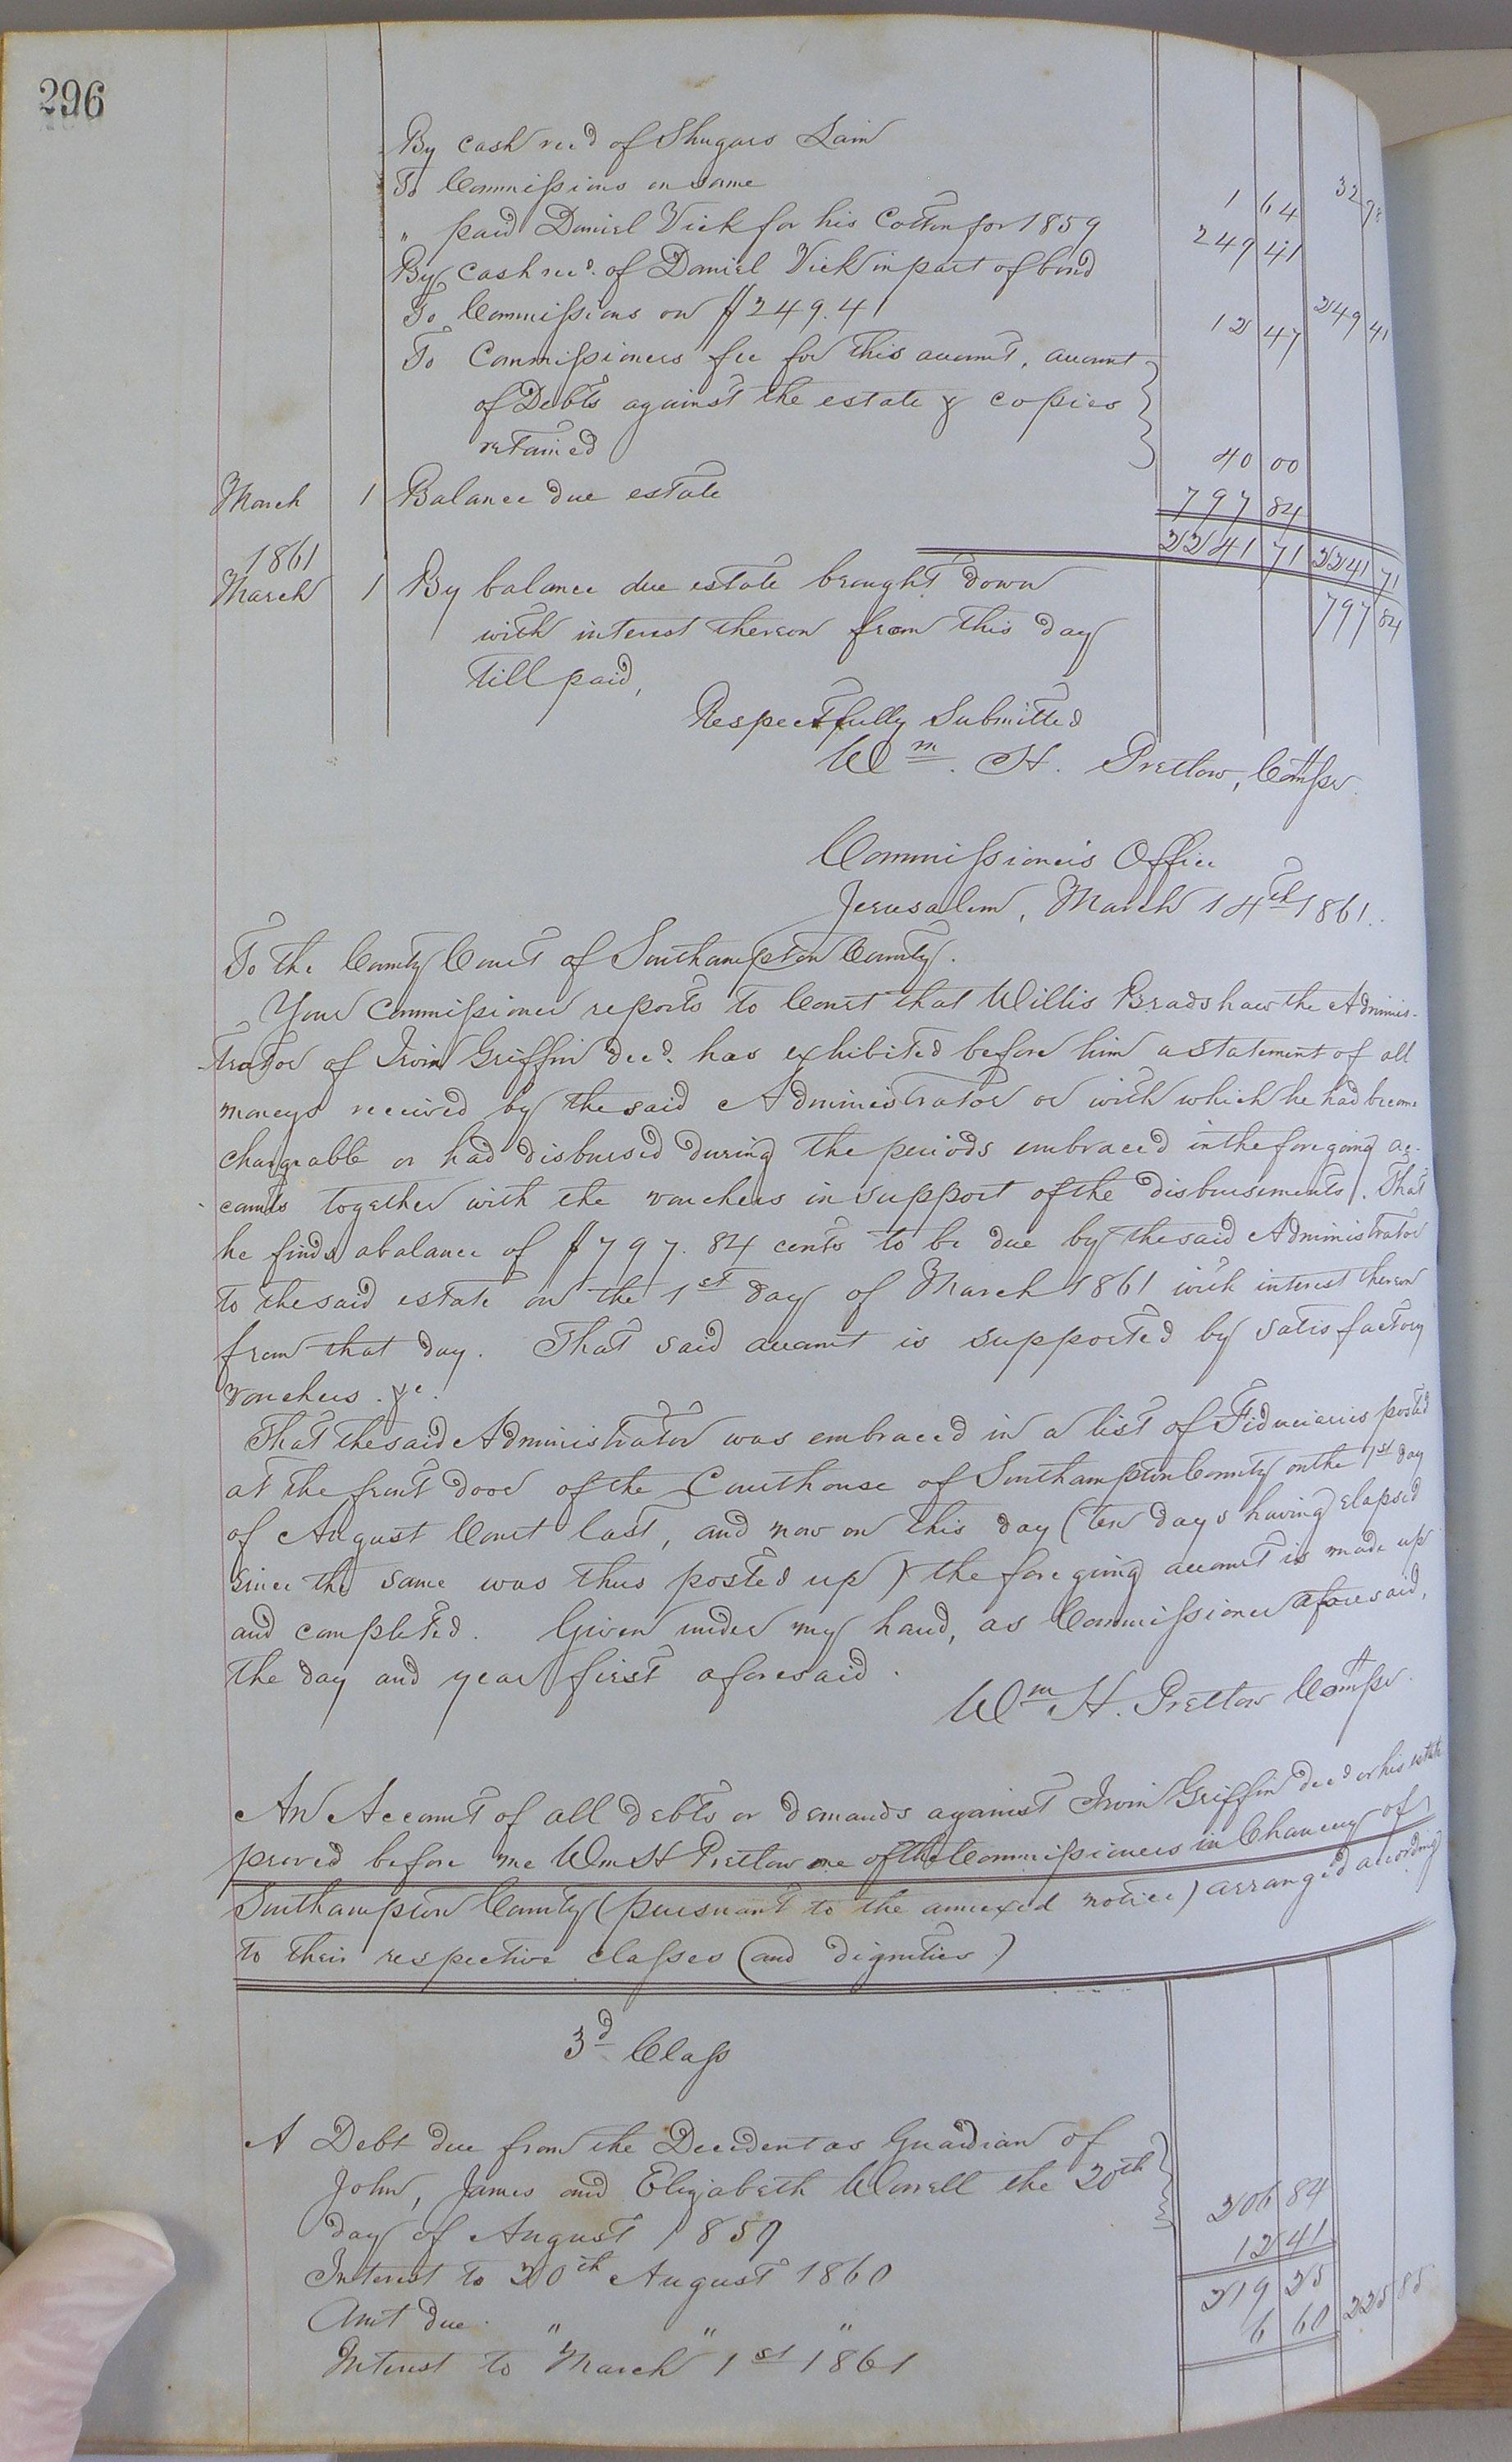 296
By cash recd of Shugars Lain 32 78
To Commissions on same 1 64
" paid Daniel Vick for his Cotton for 1859 249 41
By Cash recd. of Daniel Vick in part of bond 249 41
To Commissions on $249.41 12 47
To Commissioners fee for this account, account
of Debts against the estate & copies
retained 40 00
March 1 Balance due estate 797 84
2241 71 2241 71
1861
March 1 By balance due estate brought down 797 84
with interest thereon from this day
till paid,
Respectfully Submitted
Wm. H. Pretlow, Comsr.
Commissioner's Office
Jerusalem, March 14th 1861.
To the County Court of Southampton County.
Your Commissioner reports to Court that Willis Bradshaw the Adminis-
trator of Irvin Griffin decd. has exhibited before him a statement of all
moneys received by the said Administrator or with which he had become
chargeable or had disbursed during the periods embraced in the foregoing ac-
counts together with the vouchers in support of the disbursements. That
he finds a balance of $797.84 cents to be due by the said Administrator
to the said estate on the 1st day of March 1861 with interest thereon
from that day. That said account is supported by satisfactory
vouchers. &c.
That the said Administrator was embraced in a list of Fiduciaries posted
at the front door of the Courthouse of Southampton County on the 1st day
of August Court last, and now on this day (ten days having elapsed
since the same was thus posted up) the foregoing account is made up
and completed. Given under my hand, as Commissioner aforesaid,
the day and year first aforesaid.
Wm. H. Pretlow Comsr.
An Account of all debts or demands against Irvin Griffin decd or his estate
proved before me Wm H Pretlow one of the Commissioners in Chancery of
Southampton County (pursuant to the annexed notice) arranged according
to their respective classes (and dignities)
3d Class
A Debt due from the Decedent as Guardian of
John, James and Elizabeth Worrell the 20th
day of August 1859 206 84
Interest to 20th August 1860 12 41
Amt due " " " 219 25
Interest to March 1st 1861 6 60 225 85